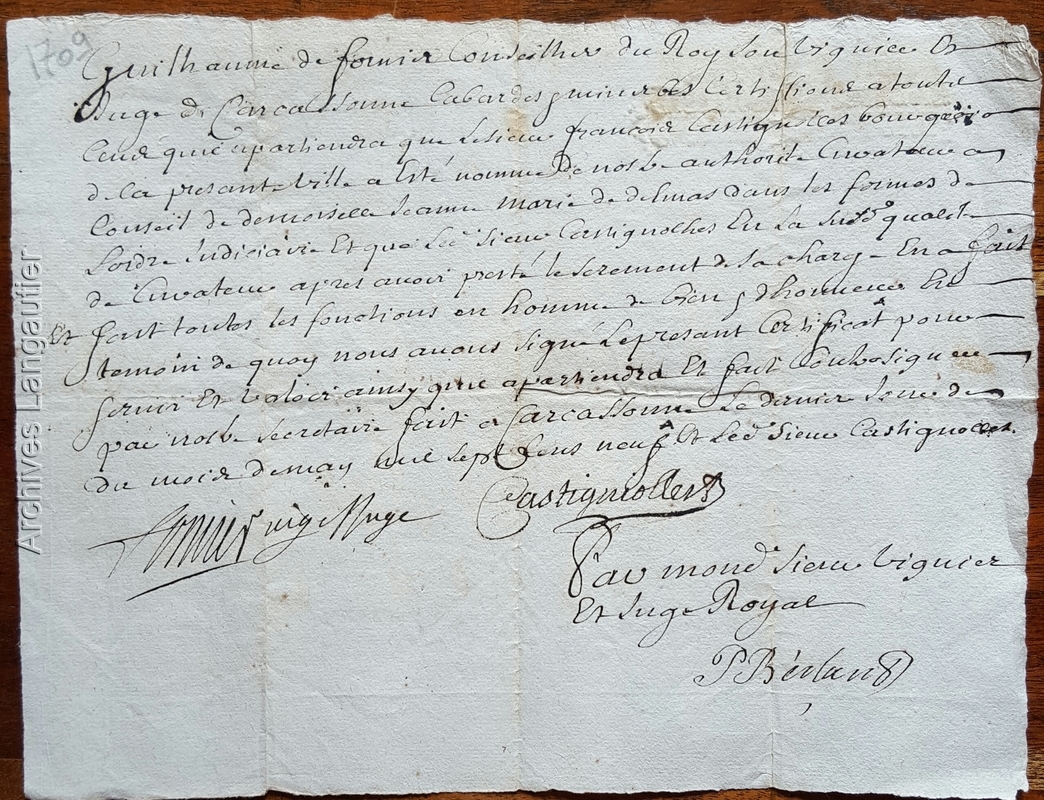 1709
Guilhaume de fornier Conseilher du Roy son viguier Et
Juge de Carcassonne Cabardes minerbes Certiffions a toute
ceux quil apartiendra que le sieur françois Castignolles bourgeois
de la presant ville a Esté nommé de nostre authorité Curateur a
Conseil de demoiselle Jeanne marie de delmas dans les formes de
Lordre Judiciaire Et que led sieur Castignolles En la susd qualité
de Curateur apres avoir presté le serement de sa charge En a fait
Et fait toutes les fonctions en homme de bien & dhonneur En
temoin de quoy nous avons signé le presant Certificat pour
servir Et valoir ainsy quil apartiendra Et fait Contresigner
par nostre secretaire fait a Carcassonne Le dernier Jour
du mois de may mil sept Cens neuf Et led sieur Castignolles
fornier vige Juge
Castigniolles
Par mond sieur viguier
Et Juge Royal
P Berlan
Archives Langautier